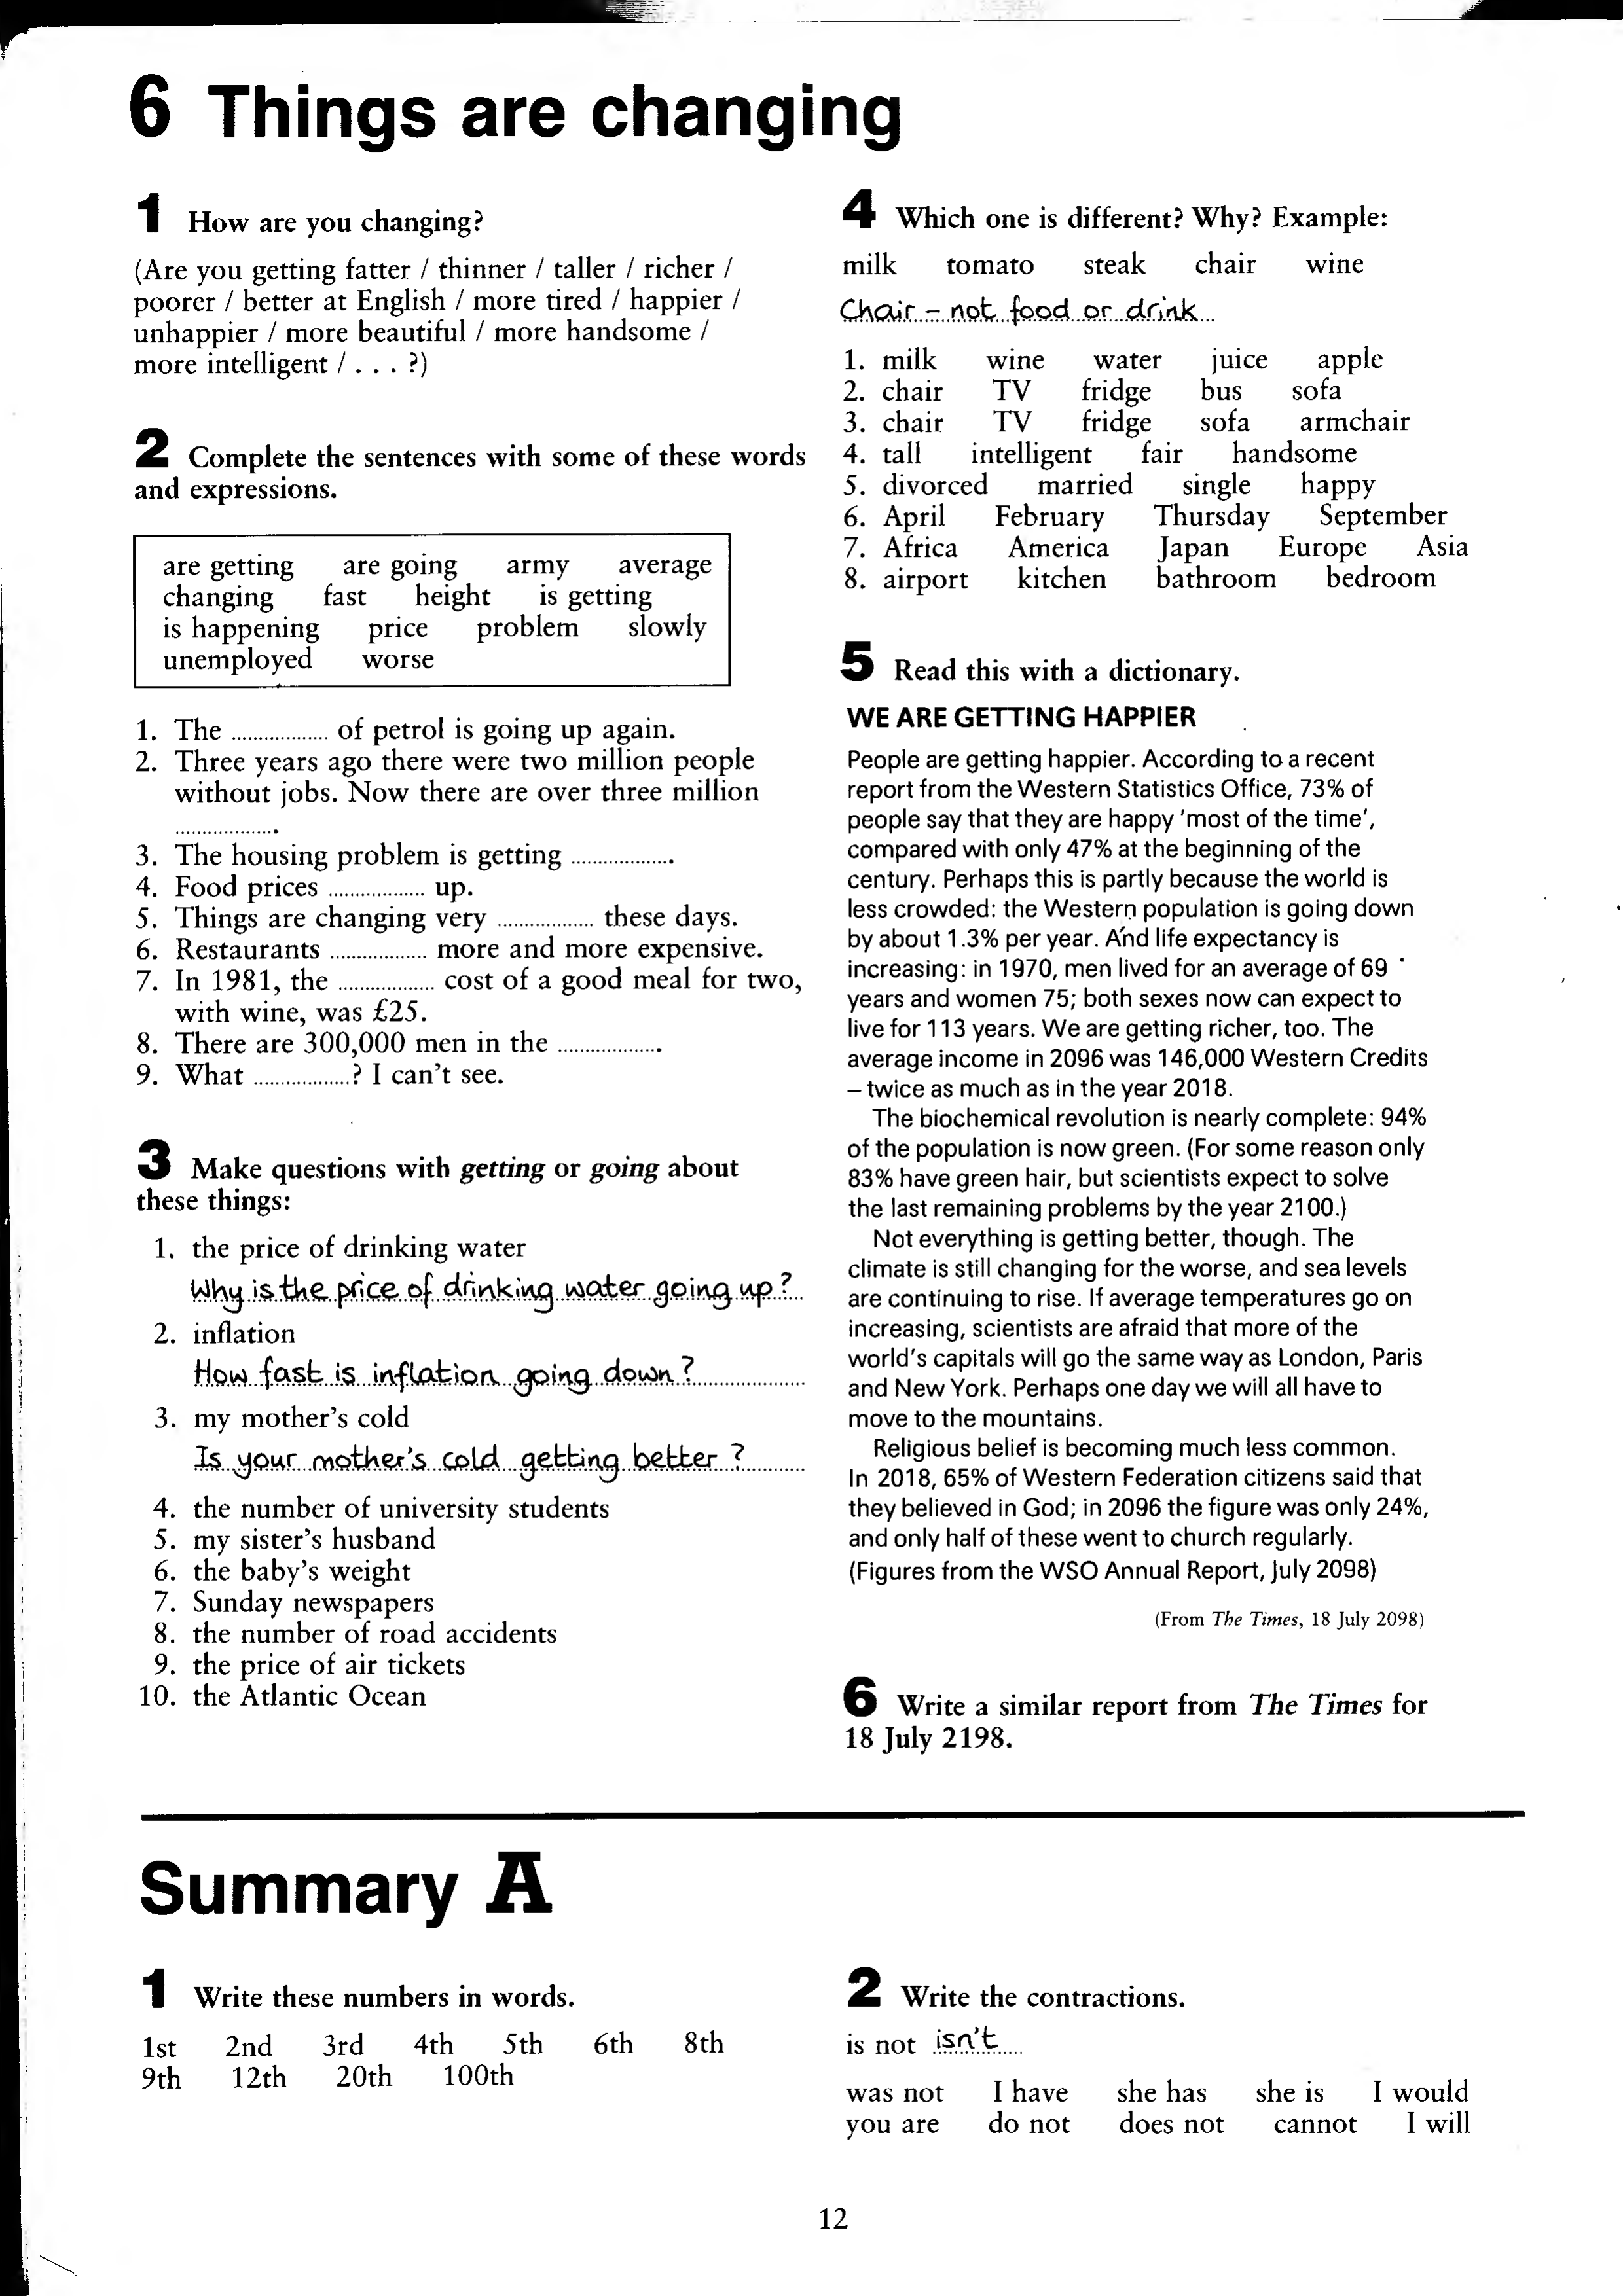 6 Things are changing
1 How are you changing?
(Are you getting fatter / thinner / taller / richer /
poorer / better at English / more tired / happier /
unhappier / more beautiful / more handsome /
more intelligent / . . . ?)
2 Complete the sentences with some of these words
and expressions.
are getting are going army average
changing fast height is getting
is happening price problem slowly
unemployed worse
1. The .................. of petrol is going up again.
2. Three years ago there were two million people
without jobs. Now there are over three million
...................
3. The housing problem is getting ...................
4. Food prices .................. up.
5. Things are changing very .................. these days.
6. Restaurants .................. more and more expensive.
7. In 1981, the .................. cost of a good meal for two,
with wine, was £25.
8. There are 300,000 men in the ...................
9. What ..................? I can't see.
3 Make questions with getting or going about
these things:
1. the price of drinking water
Why is the price of drinking water going up?
2. inflation
How fast is inflation going down?
3. my mother's cold
Is your mother's cold getting better?
4. the number of university students
5. my sister's husband
6. the baby's weight
7. Sunday newspapers
8. the number of road accidents
9. the price of air tickets
10. the Atlantic Ocean
4 Which one is different? Why? Example:
milk tomato steak chair wine
Chair – not food or drink
1. milk wine water juice apple
2. chair TV fridge bus sofa
3. chair TV fridge sofa armchair
4. tall intelligent fair handsome
5. divorced married single happy
6. April February Thursday September
7. Africa America Japan Europe Asia
8. airport kitchen bathroom bedroom
5 Read this with a dictionary.
WE ARE GETTING HAPPIER
People are getting happier. According to a recent
report from the Western Statistics Office, 73% of
people say that they are happy 'most of the time',
compared with only 47% at the beginning of the
century. Perhaps this is partly because the world is
less crowded: the Western population is going down
by about 1.3% per year. And life expectancy is
increasing: in 1970, men lived for an average of 69
years and women 75; both sexes now can expect to
live for 113 years. We are getting richer, too. The
average income in 2096 was 146,000 Western Credits
– twice as much as in the year 2018.
The biochemical revolution is nearly complete: 94%
of the population is now green. (For some reason only
83% have green hair, but scientists expect to solve
the last remaining problems by the year 2100.)
Not everything is getting better, though. The
climate is still changing for the worse, and sea levels
are continuing to rise. If average temperatures go on
increasing, scientists are afraid that more of the
world's capitals will go the same way as London, Paris
and New York. Perhaps one day we will all have to
move to the mountains.
Religious belief is becoming much less common.
In 2018, 65% of Western Federation citizens said that
they believed in God; in 2096 the figure was only 24%,
and only half of these went to church regularly.
(Figures from the WSO Annual Report, July 2098)
(From The Times, 18 July 2098)
6 Write a similar report from The Times for
18 July 2198.
Summary A
1 Write these numbers in words.
1st 2nd 3rd 4th 5th 6th 8th
9th 12th 20th 100th
2 Write the contractions.
is not isn't
was not I have she has she is I would
you are do not does not cannot I will
12